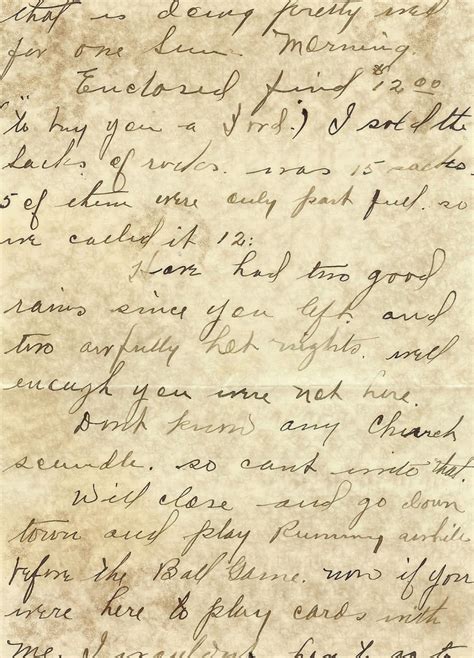 that is doing pretty well
for one Sun. Morning.
Enclosed find $12.00
"to buy you a Ford.) I sold the
sacks of rocks. was 15 sacks
5 of them were only part full. so
we called it 12:
Have had two good
rains since you left and
two awfully hot nights. well
enough you were not here.
Dont know any Church
scandle. so cant write that.
Will close and go down
town and play Rummy awhile
before the Ball Game. now if you
were here to play cards with
me. I wouldnt have to go to